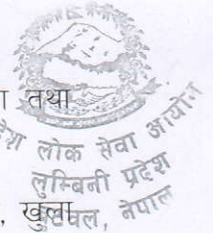 ा तथा
प्रदेश लोक सेवा आयोग
लुम्बिनी प्रदेश
बुटवल, नेपाल
, खुला